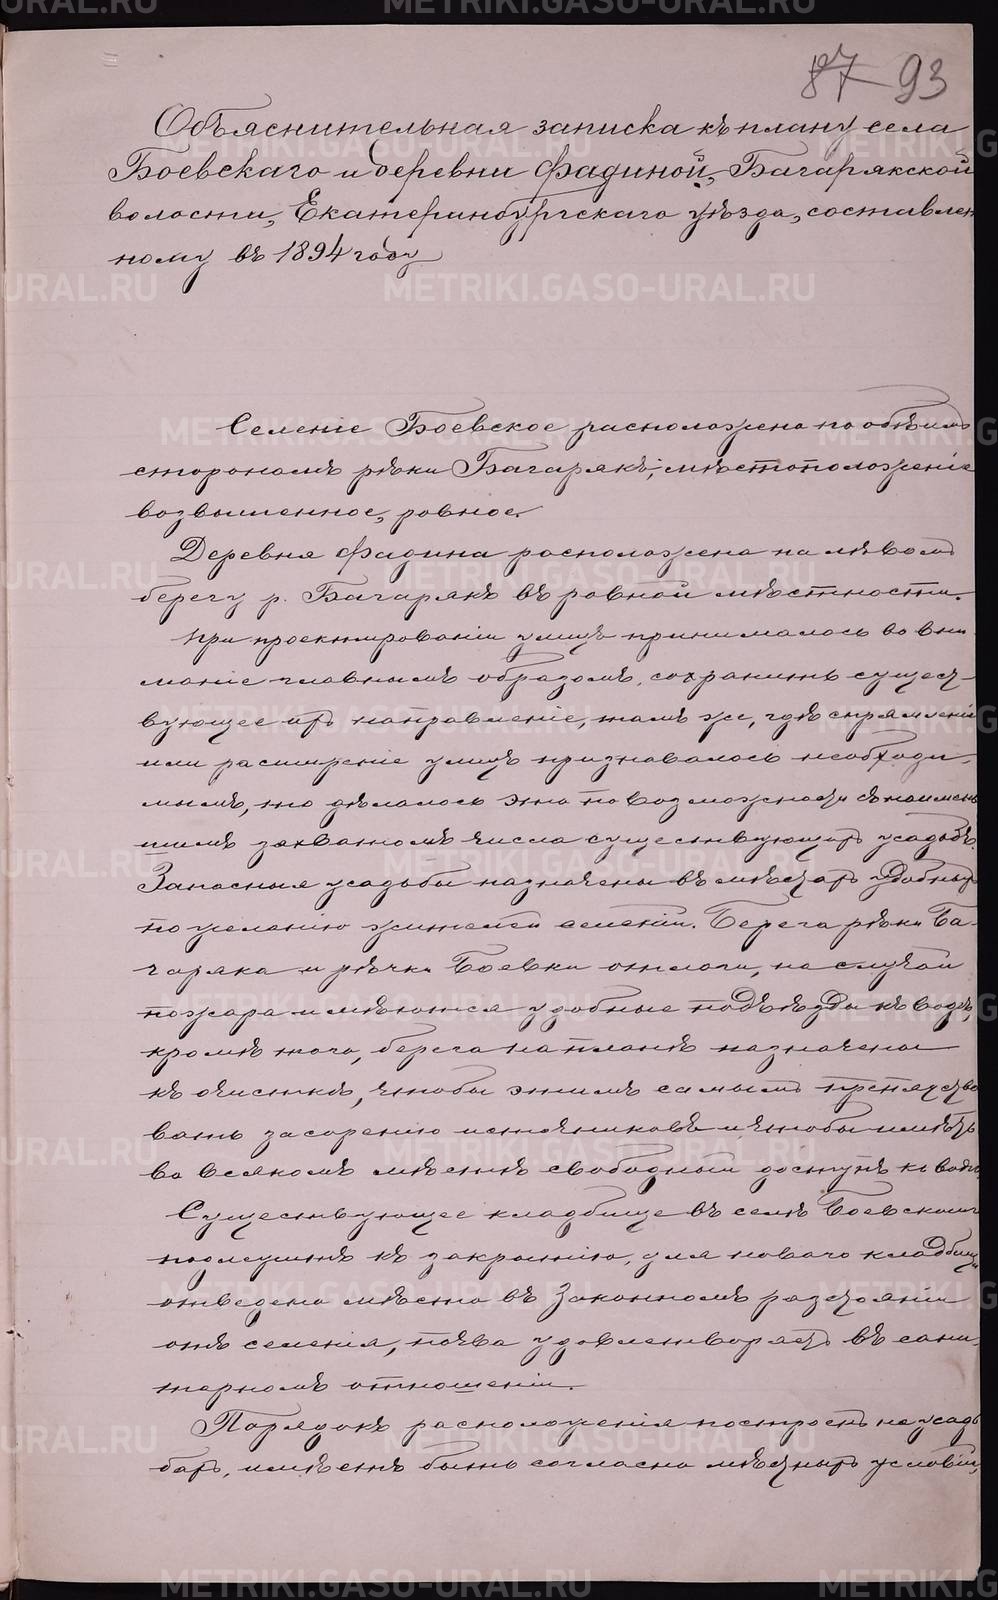 87 93
Объяснительная записка къ плану села
Боевскаго и деревни Фадиной, Багарякской
волости, Екатеринбургскаго уѣзда, составлен
ному въ 1894 году
Селеніе Боевское расположено по обѣимъ
сторонамъ рѣки Багарякъ, мѣстоположеніе
возвышенное, ровное.
Деревня Фадина расположена на лѣвомъ
берегу р. Багарякъ въ ровной мѣстности.
При проектированіи улицъ принималось во вни
маніе главнымъ образомъ, сохранить сущест-
вующее ихъ направленіе, тамъ же, гдѣ спрямленіе
или расширеніе улицъ признавалось необходи
мымъ, то дѣлалось это по возможности съ наимень
шимъ захватомъ числа существующихъ усадьбъ.
Запасныя усадьбы назначены въ мѣстахъ удобныхъ
по желанію жителей селеній. Берега рѣки Ба-
гаряка и рѣчки Боевки отлоги, на случай
пожара имѣются удобные подъѣзды къ водѣ,
кромѣ того, берега на планѣ назначены
къ очисткѣ, чтобы этимъ самымъ препятство
вать засоренію источниковъ и чтобы имѣть
во всякомъ мѣстѣ свободный доступъ къ водѣ.
Существующее кладбище въ селѣ Боевскомъ
подлежитъ къ закрытію, для новаго кладбища
отведено мѣсто въ законномъ разстояніи
отъ селенія, почва удовлетворяетъ въ сани
тарномъ отношеніи.
Порядокъ расположенія построекъ на усадь
бахъ, имѣетъ быть согласно мѣстныхъ условій,
METRIKI.GASO-URAL.RU